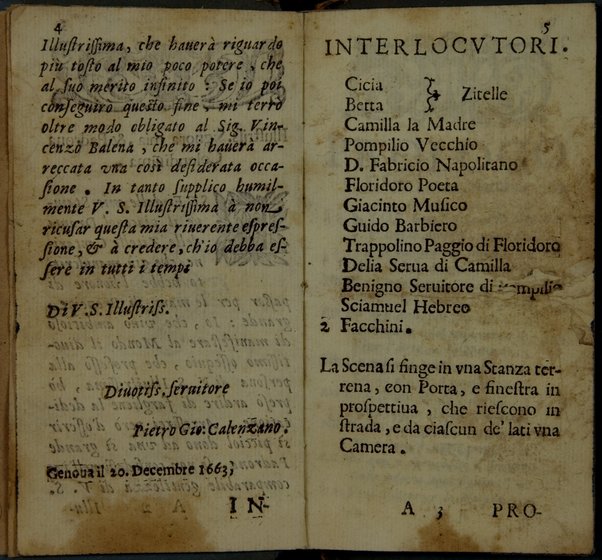 4
Illustrissima, che hauerà riguardo
più tosto al mio poco potere, che
al suo merito infinito: Se io poi
conseguirò questo fine, mi terrò
oltre modo obligato al Sig. Vin-
cenzo Balena, che mi hauerà ar-
reccata vna così desiderata occa-
sione. In tanto supplico humil-
mente V. S. Illustrissima à non
ricusar questa mia riuerente espres-
sione, & à credere, ch'io debba es-
sere in tutti i tempi
Di V. S. Illustriss.
Diuotiss. seruitore
Pietro Gio: Calenzano.
Genoua il 20. Decembre 1663.
IN-
5
INTERLOCVTORI.
Cicia
Betta
Zitelle
Camilla la Madre
Pompilio Vecchio
D. Fabricio Napolitano
Floridoro Poeta
Giacinto Musico
Guido Barbiero
Trappolino Paggio di Floridoro
Delia Serua di Camilla
Benigno Seruitore di Pompilio
Sciamuel Hebreo
2 Facchini.
La Scena si finge in vna Stanza ter-
rena, con Porta, e finestra in
prospettiua, che riescono in
strada, e da ciascun de' lati vna
Camera.
A 3 PRO-